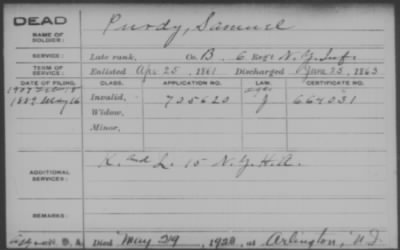 DEAD
NAME OF SOLDIER: Purdy, Samuel
SERVICE: Late rank, Co. B, 6 Reg't N.Y. Inf.
TERM OF SERVICE: Enlisted Apr 25, 1861 Discharged June 25, 1863
DATE OF FILING. CLASS. APPLICATION NO. LAW. CERTIFICATE NO.
1907
1889 May 16 Invalid, 705620 J 664031
Widow,
Minor,
ADDITIONAL SERVICES: K. and L. 15 N.Y.H.A.
REMARKS:
Died May 29, 1920, at Arlington, N.J.